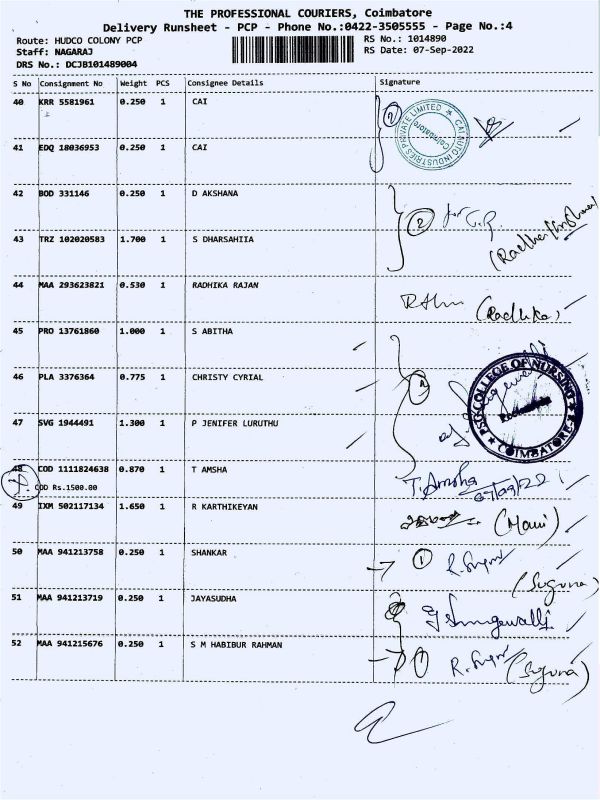 THE PROFESSIONAL COURIERS, Coimbatore
Delivery Runsheet - PCP - Phone No.:0422-3505555 - Page No.:4
Route: HUDCO COLONY PCP
Staff: NAGARAJ
DRS No.: DCJB101489004
RS No.: 1014890
RS Date: 07-Sep-2022
S No Consignment No Weight PCS Consignee Details Signature
40 KRR 5581961 0.250 1 CAI
2
CAI AUTO INDUSTRIES PRIVATE LIMITED ★
Coimbatore
41 EDQ 18036953 0.250 1 CAI
42 BOD 331146 0.250 1 D AKSHANA
2
43 TRZ 102020583 1.700 1 S DHARSAHIIA
44 MAA 293623821 0.530 1 RADHIKA RAJAN
(Radhika)
45 PRO 13761860 1.000 1 S ABITHA
46 PLA 3376364 0.775 1 CHRISTY CYRIAL
PSG COLLEGE OF NURSING
★ COIMBATORE ★
47 SVG 1944491 1.300 1 P JENIFER LURUTHU
48 COD 1111824638 0.870 1 T AMSHA
COD Rs.1500.00
T. Amsha
07/09/22
49 IXM 502117134 1.650 1 R KARTHIKEYAN
(Mani)
50 MAA 941213758 0.250 1 SHANKAR
1
(Suguna)
51 MAA 941213719 0.250 1 JAYASUDHA
52 MAA 941215676 0.250 1 S M HABIBUR RAHMAN
1
(Suguna)